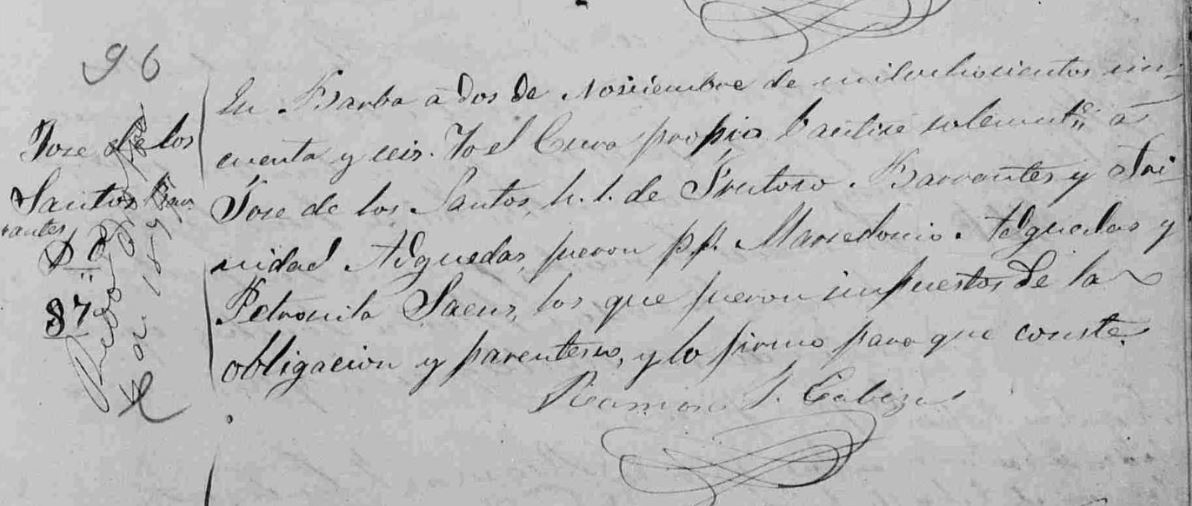 96
Jose de los
Santos Barr
antes
D C
87
En Barba a dos de Noviembre de milochosientos cin-
cuenta y seis. Yo el Cura propio bautisé solemnte. á
Jose de los Santos, h. l. de Frutoso Barrantes y Tri-
nidad Adguedas, fueron pp. Marsedonio Adguedas y
Petronila Saenz, los que fueron impuestos de la
obligacion y parentesco, y lo firmo para que conste.
Ramon